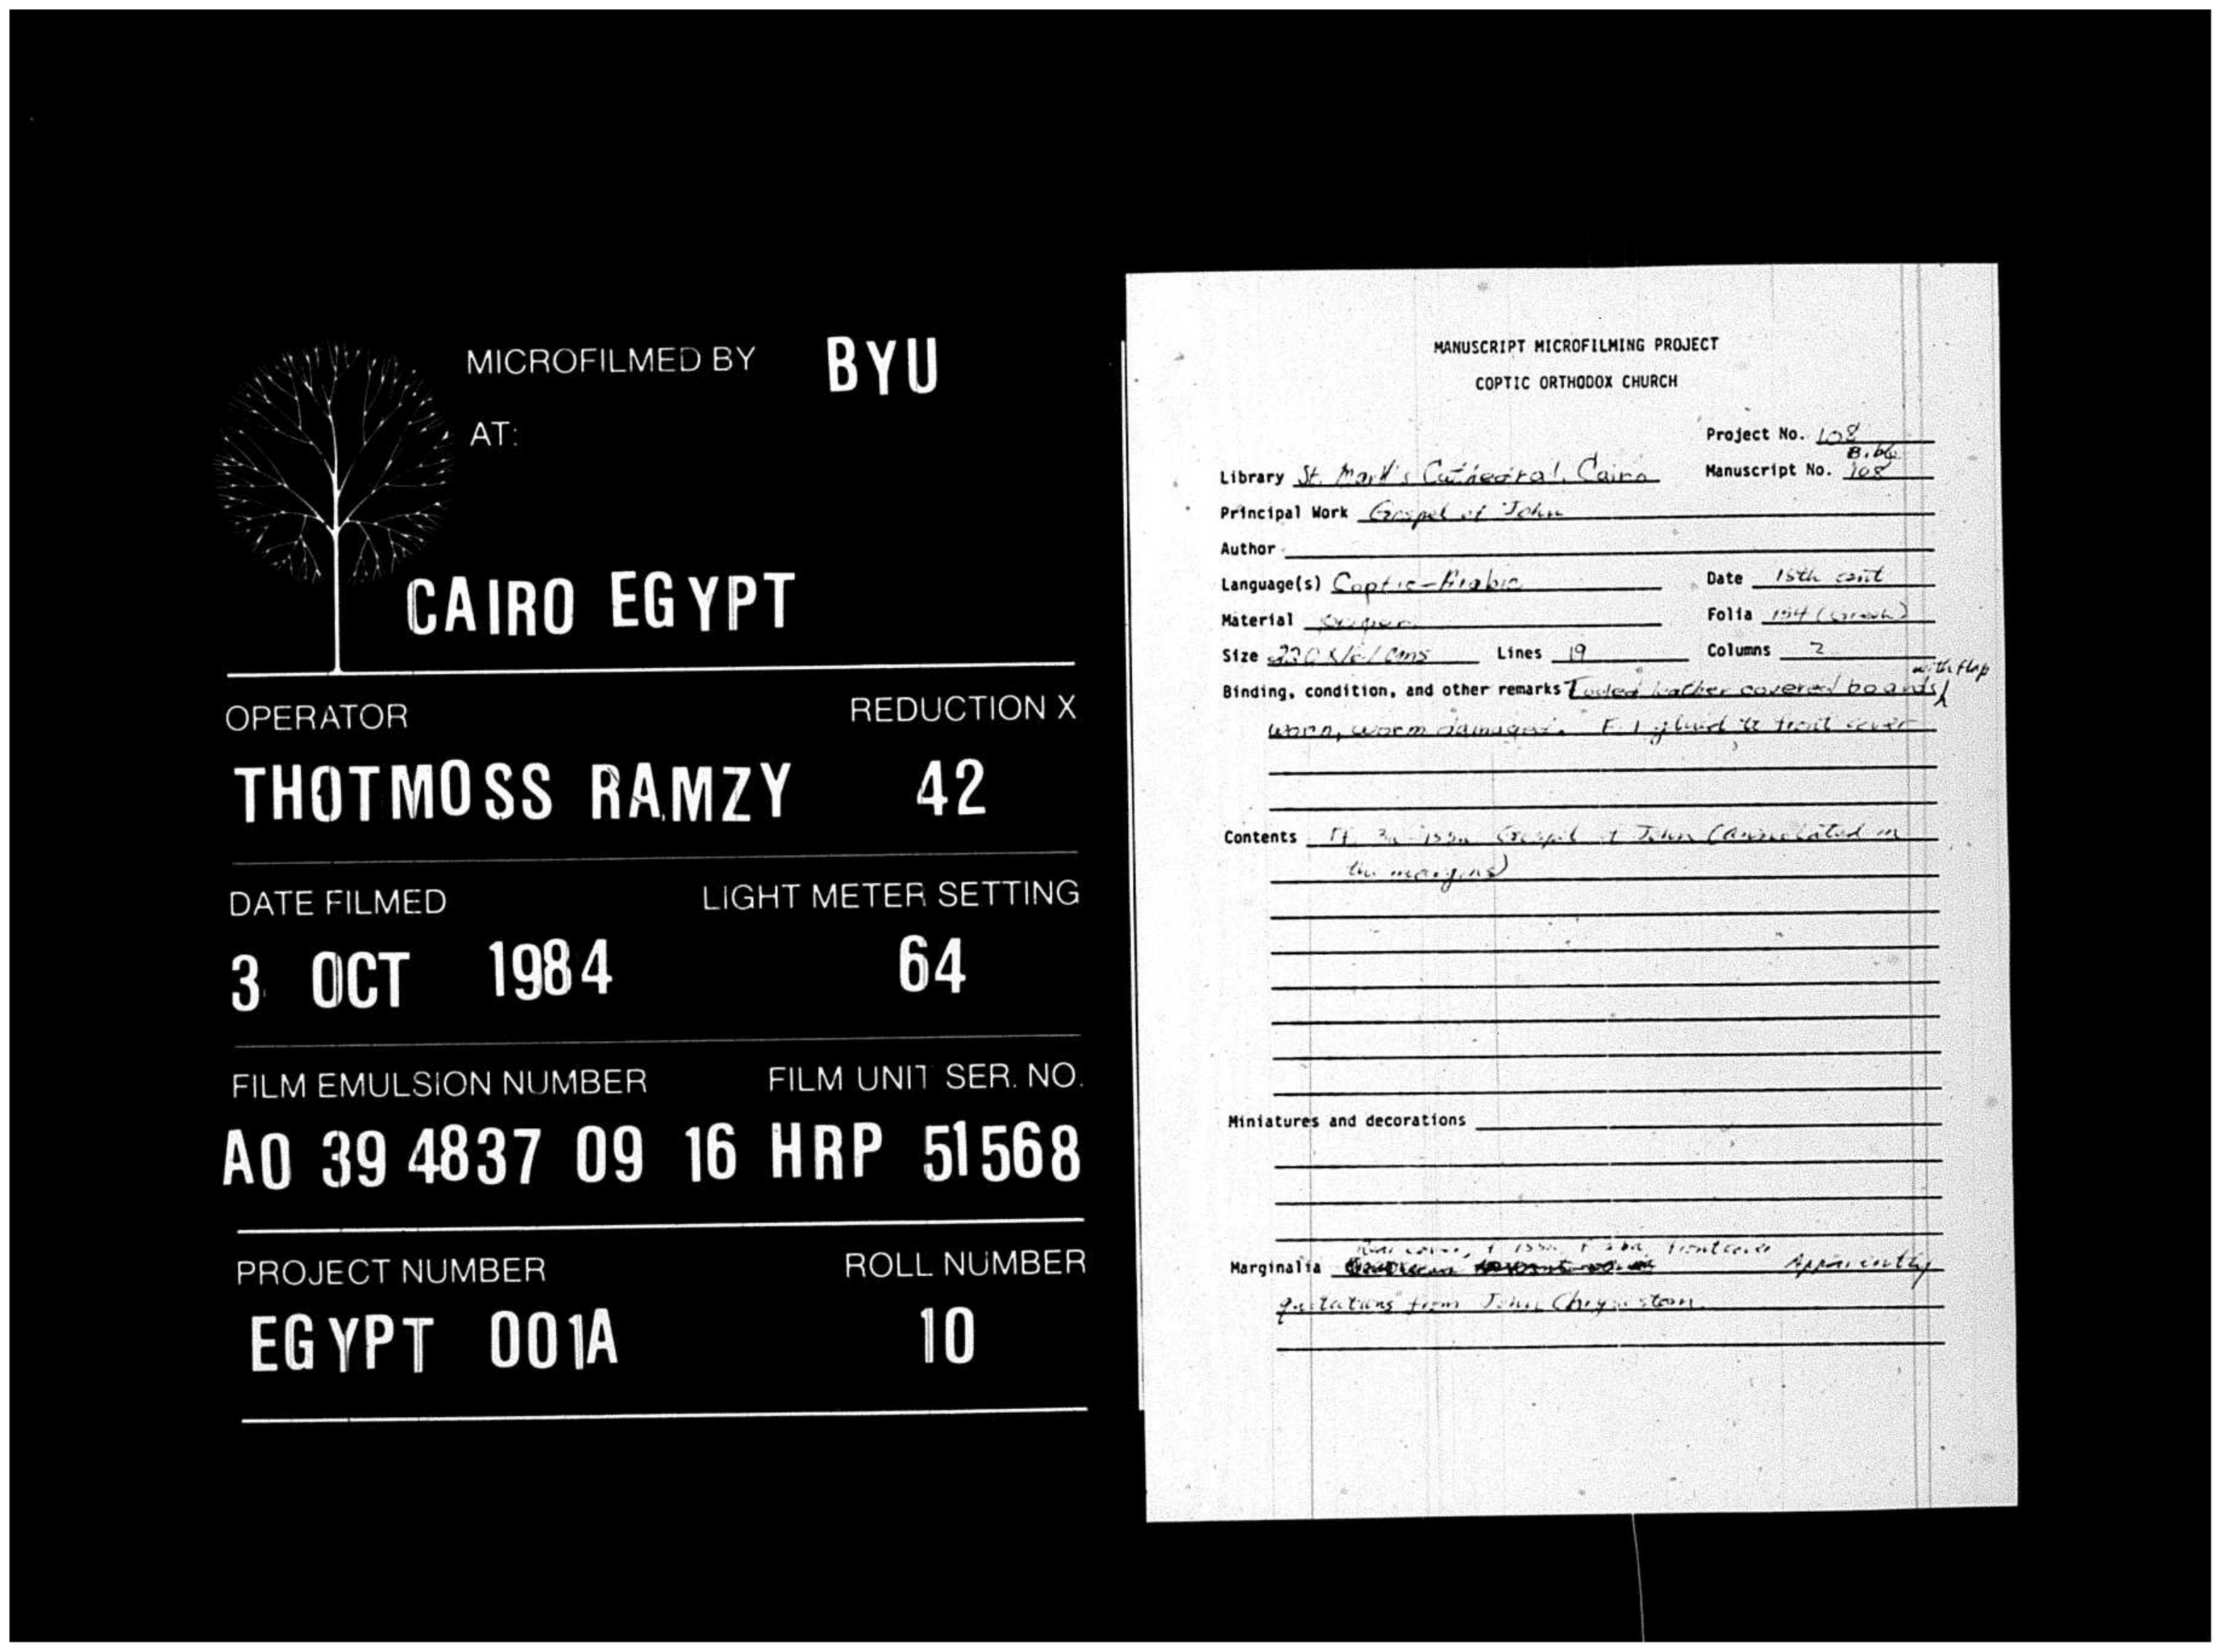 MICROFILMED BY BYU
AT:
CAIRO EGYPT
OPERATOR REDUCTION X
THOTMOSS RAMZY 42
DATE FILMED LIGHT METER SETTING
3 OCT 1984 64
FILM EMULSION NUMBER FILM UNIT SER. NO.
A0 39 4837 09 16 HRP 51568
PROJECT NUMBER ROLL NUMBER
EGYPT 001A 10
MANUSCRIPT MICROFILMING PROJECT
COPTIC ORTHODOX CHURCH
Project No. 108
Bible
Library St. Mark's Cathedral, Cairo Manuscript No. 108
Principal Work Gospel of John
Author
Language(s) Coptic-Arabic Date 15th cent
Material paper Folia 154
Size Lines 19 Columns 2
with flap
Binding, condition, and other remarks Tooled leather covered boards
worn, worm damaged. F. 1 glued to front cover
Contents Gospel of John (annotated in
the margins)
Miniatures and decorations
front cover
Marginalia Apparently
quotations from John Chrysostom